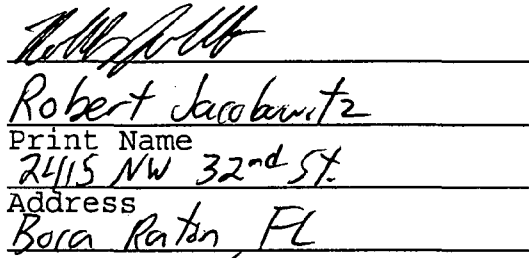 Robert Jacobowitz
Print Name
2415 NW 32nd St.
Address
Boca Raton, FL